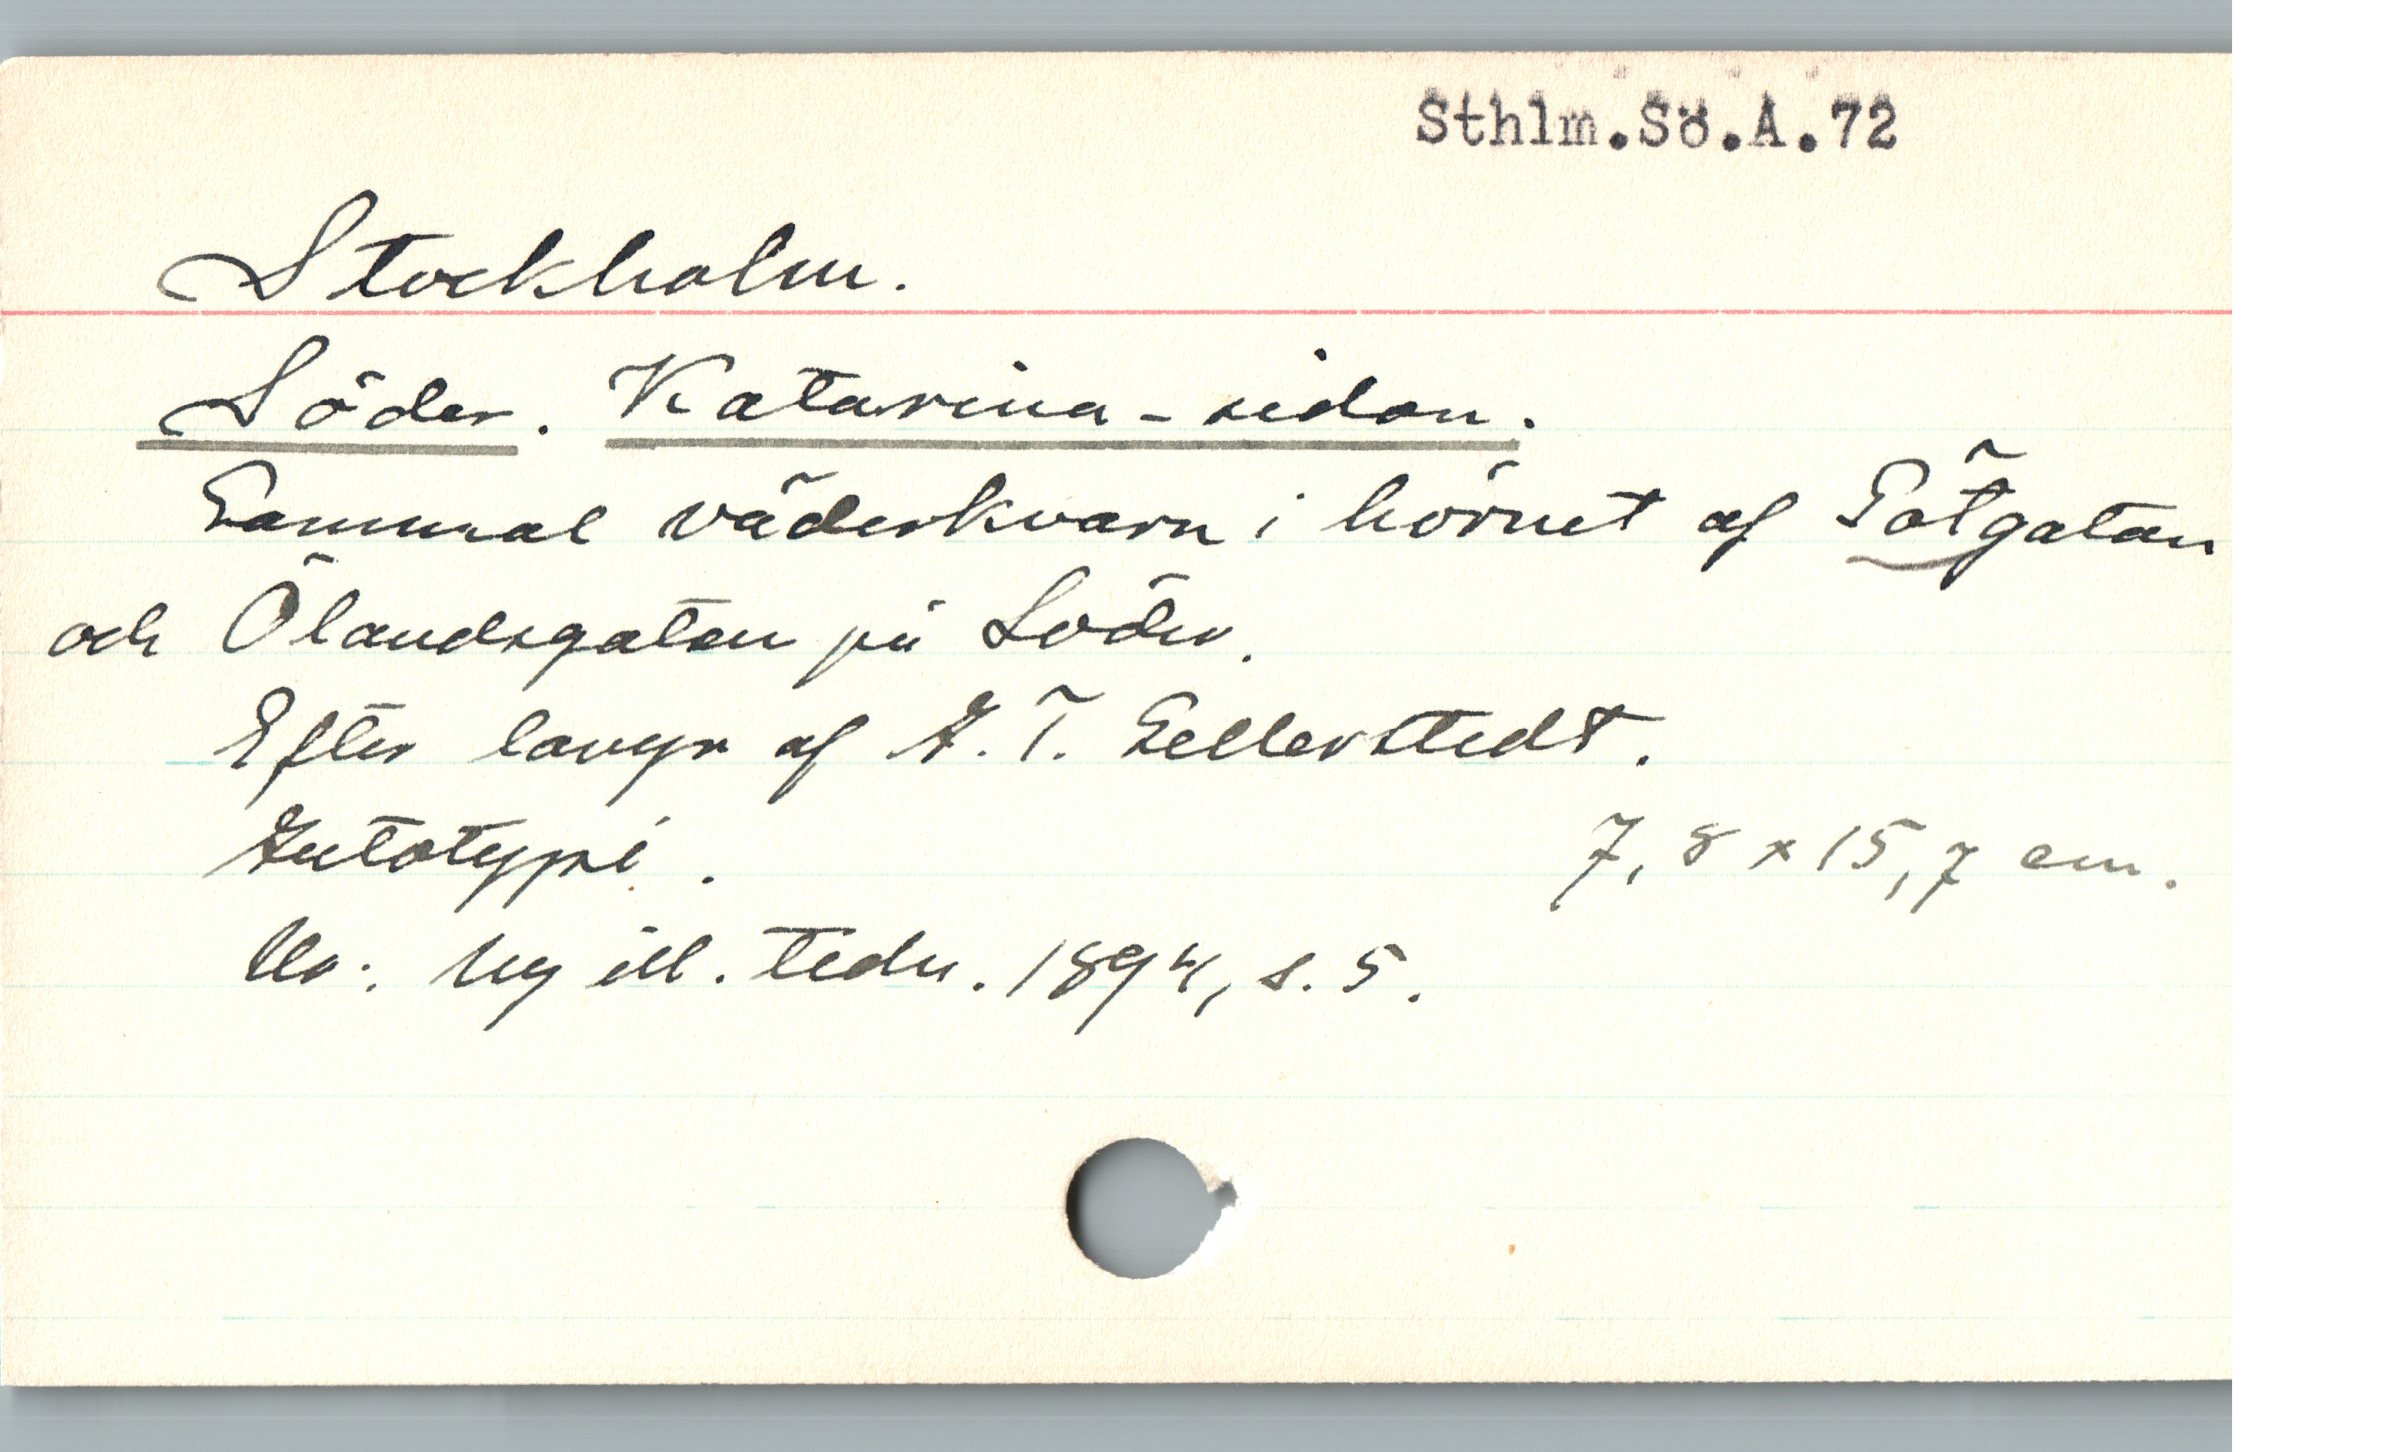 Sthlm.Sö.A.72
Stockholm.
Söder. Katarina-sidan.
Gammal väderkvarn i hörnet af Götgatan
och Ölandsgatan på Söder.
Efter lavyr af A. T. Gellerstedt.
Autotypi. 7,8 x 15,7 cm.
Ur: Ny ill. tidn. 1894, s. 5.